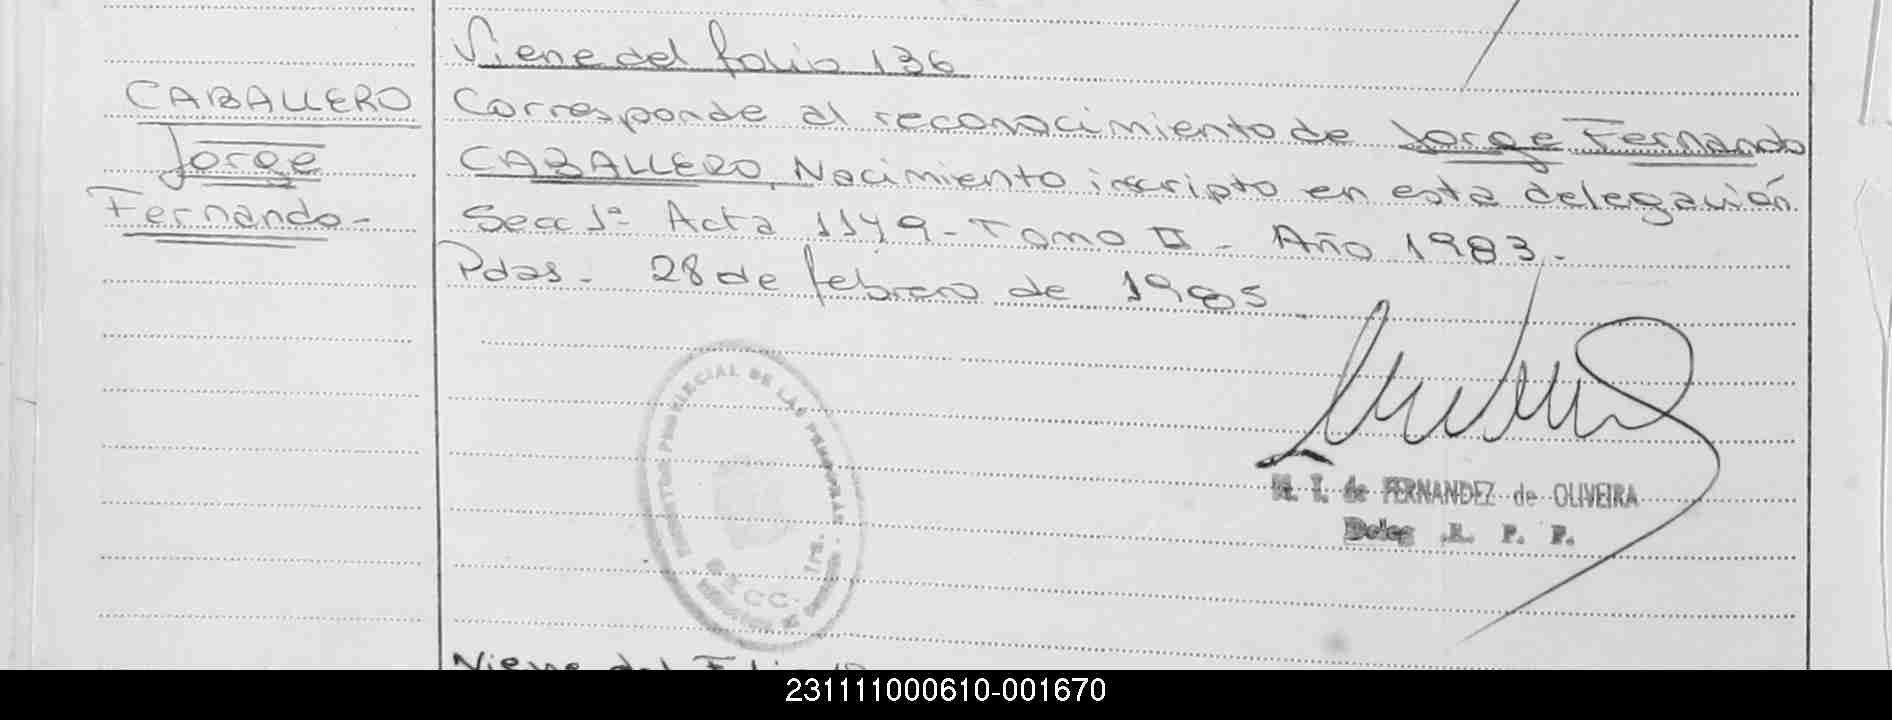 Viene del folio 136
CABALLERO
Jorge
Fernando-
Corresponde al reconocimiento de Jorge Fernando
CABALLERO, Nacimiento inscripto en esta delegación
Secc 1ª Acta 1149- Tomo II - Año 1983.-
Pdas- 28 de febrero de 1985
PROVINCIAL DE LAS PERSONAS
SECC. 1ra.
M. I. de FERNANDEZ de OLIVEIRA
Deleg. R. P. P.
Viene del
231111000610-001670